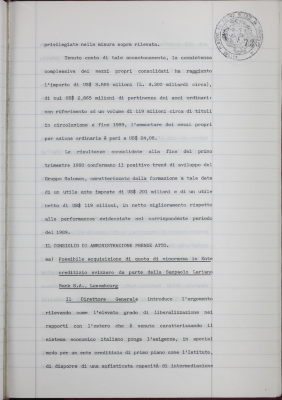 privilegiate nella misura sopra rilevata.
Tenuto conto di tale accantonamento, la consistenza
complessiva dei mezzi propri consolidati ha raggiunto
l'importo di US$ 3,565 milioni (L. 4.500 miliardi circa),
di cui US$ 2,865 milioni di pertinenza dei soci ordinari:
con riferimento ad un volume di 119 milioni circa di titoli
in circolazione a fine 1989, l'ammontare dei mezzi propri
per azione ordinaria è pari a US$ 24,05.
Le risultanze consolidate alla fine del primo
trimestre 1990 confermano il positivo trend di sviluppo del
Gruppo Salomon, constatandosi dalla formazione a tale data
di un utile ante imposte di US$ 201 milioni e di un utile
netto di US$ 118 milioni, in netto miglioramento rispetto
alle performance evidenziate nel corrispondente periodo
del 1989.
IL CONSIGLIO DI AMMINISTRAZIONE PRENDE ATTO.
Possibile acquisizione di quota di minoranza in Ente
creditizio svizzero da parte della Cariplo Lariano
Bank S.A., Luxembourg
Il Direttore Generale introduce l'argomento
rilevando come l'elevato grado di liberalizzazione nei
rapporti con l'estero che è venuto caratterizzando il
sistema economico italiano ponga l'esigenza, in special
modo per un ente creditizio di primo piano come l'Istituto,
di disporre di una sofisticata capacità di intermediazione